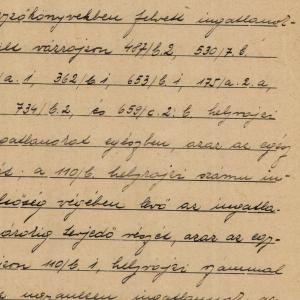 jzőkönyvekben felvett ingatlanok-
vázrajzon 487/b.2, 530/7.b,
/a.1, 362/b.1, 653/b.1, 175/a.2.a,
734/b.2, és 653/c.2.b. helyrajzi
ngatlanokat egészben, azaz az egész
; a 110/b. helyrajzi számu in-
végében levő az ingatla-
terjedő részét, azaz az egy-
110/b.1, helyrajzi számmal
ingatlanok